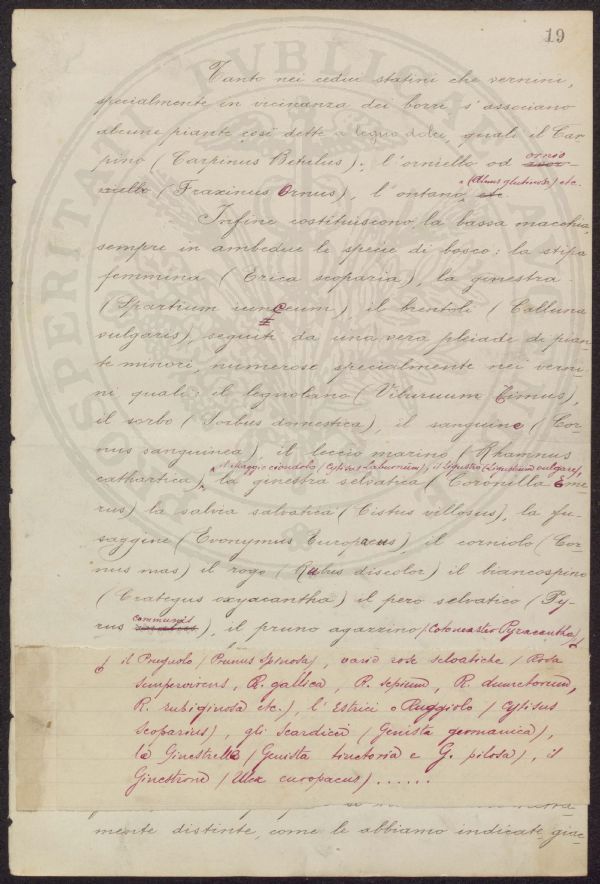 19
Tanto nei cedui statini che vernini,
specialmente in vicinanza dei borri s'associano
alcune piante così dette a legno dolce, quali il Car-
pino (Carpinus Betulus), l'orniello od ornio
(Fraxinus Ornus), l'ontano (Alnus glutinosa) etc.
Infine costituiscono la bassa macchia,
sempre in ambedue le specie di bosco: la stipa
femmina (Erica scoparia), la ginestra
(Spartium iunceum), il brentoli (Calluna
vulgaris), seguiti da una vera pleiade di pian-
te minori, numerose specialmente nei verni-
ni quali: il legnotano (Viburnum Timus),
il sorbo (Sorbus domestica), il sanguine (Cor-
nus sanguinea), il leccio marino (Rhamnus
cathartica), il Maggio ciondolo (Cytisus Laburnum), il Ligustro (Ligustrum vulgare),
la ginestra selvatica (Coronilla Eme-
rus) la salvia salvatica (Cistus villosus), la fu-
saggine (Evonymus Europaeus), il corniolo (Cor-
nus mas) il rogo (Rubus discolor) il biancospino
(Crategus oxyacantha) il pero selvatico (Py-
rus communis), il pruno agazzino (Cotoneaster Pyracantha),
il Prugnolo (Prunus spinosa), varie rose selvatiche (Rosa
sempervirens, R. gallica, R. sepium, R. dumetorum,
R. rubiginosa etc.), l'Estrici o Ruggiolo (Cytisus
Scoparius), gli Scardicci (Genista germanica),
la Ginestrella (Genista tinctoria e G. pilosa), il
Ginestrone (Ulex europaeus) ......
mente distinte, come le abbiamo indicate, giac-
PROSPERITATI PUBLICAE